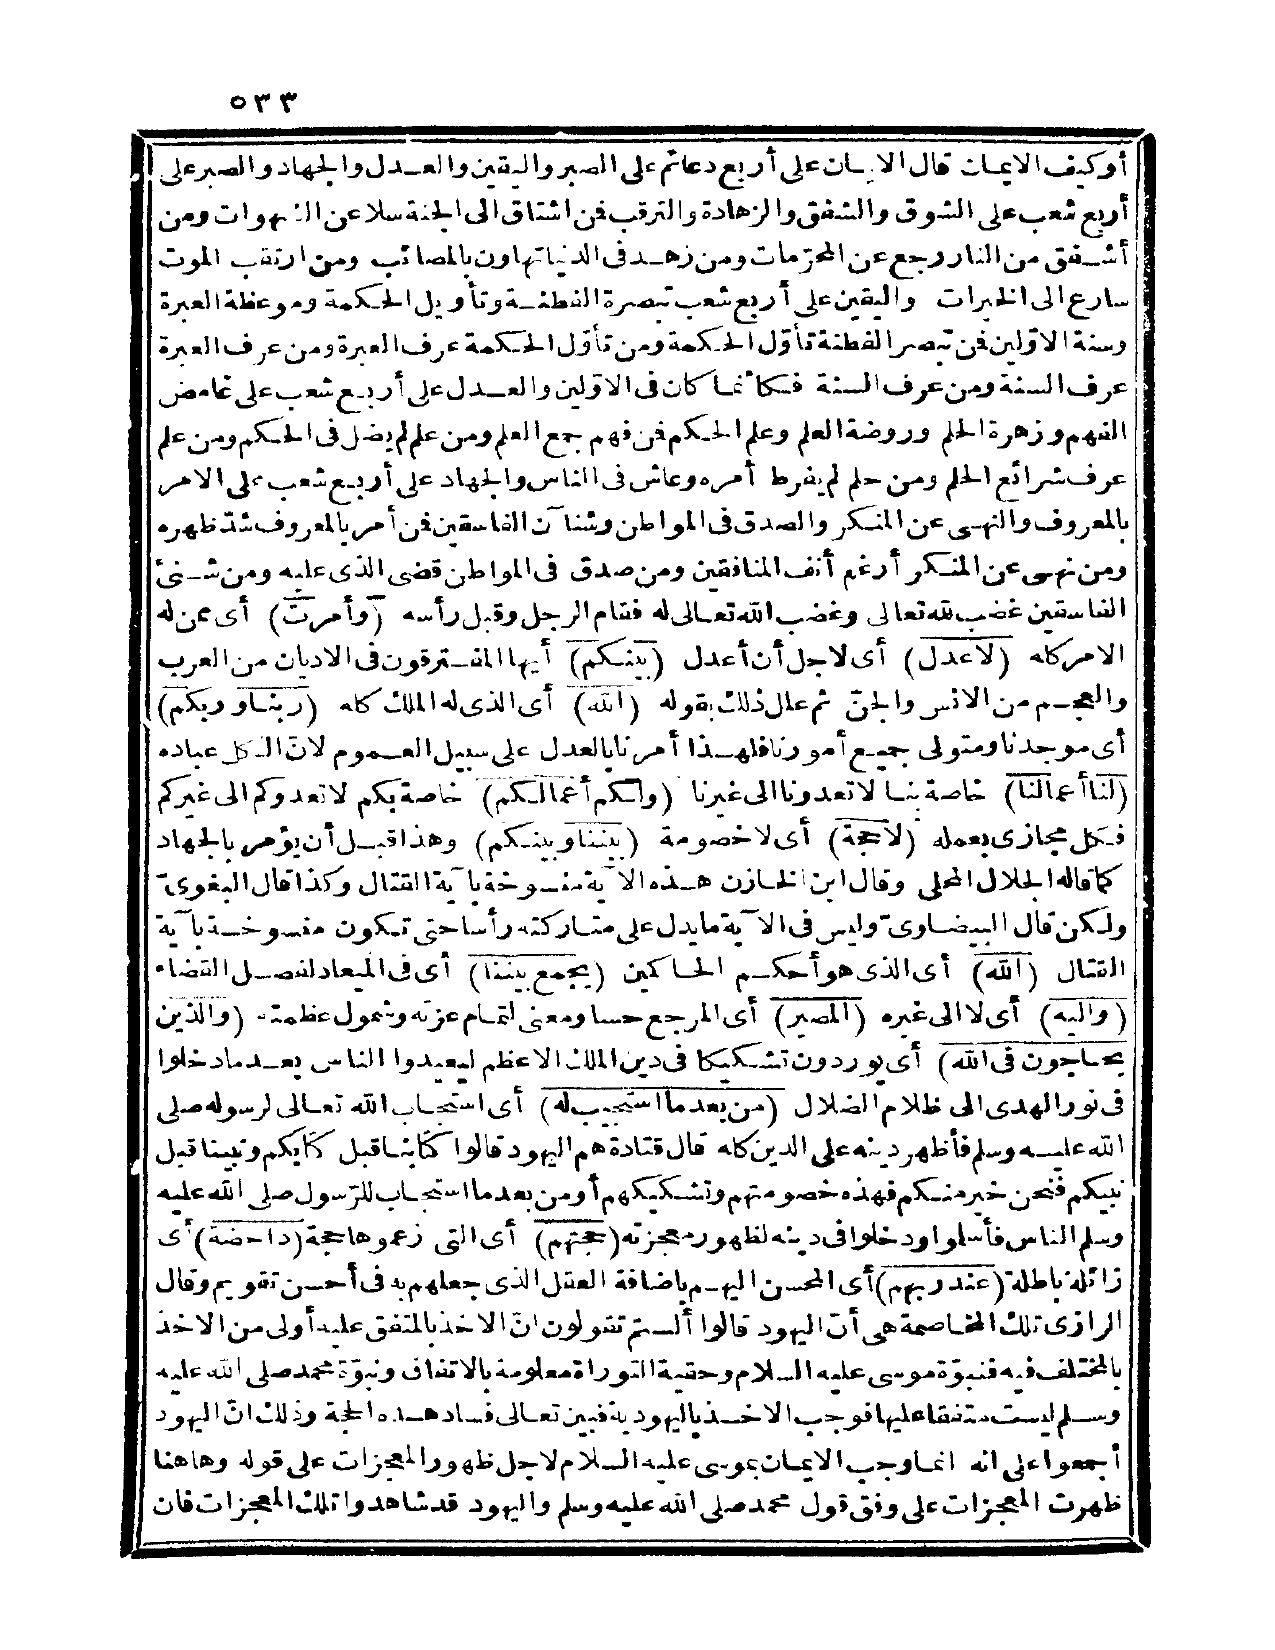 ٥٣٣
أو كيف الايمان قال الايمان على أربع دعائم على الصبر واليقين والعدل والجهاد والصبر على
أربع شعب على الشوق والشفق والزهادة والترقب فمن اشتاق الى الجنة سلا عن الشهوات ومن
أشفق من النار رجع عن المحرّمات ومن زهد فى الدنيا تهاون بالمصائب ومن ارتقب الموت
سارع الى الخيرات واليقين على أربع شعب تبصرة الفطنة وتأويل الحكمة وموعظة العبرة
وسنة الاوّلين فمن تبصر الفطنة تأوّل الحكمة ومن تأوّل الحكمة عرف العبرة ومن عرف العبرة
عرف السنة ومن عرف السنة فكأنما كان فى الاوّلين والعدل على أربع شعب على غامض
الفهم وزهرة الحلم وروضة العلم وعلم الحكم فمن فهم جمع العلم ومن علم لم يضل فى الحكم ومن علم
عرف شرائع الحلم ومن حلم لم يفرط أمره وعاش فى الناس والجهاد على أربع شعب على الامر
بالمعروف والنهى عن المنكر والصدق فى المواطن وشنآن الفاسقين فمن أمر بالمعروف شدّ ظهره
ومن نهى عن المنكر أرغم أنف المنافقين ومن صدق فى المواطن قضى الذى عليه ومن شنئ
الفاسقين غضب لله تعالى وغضب الله تعالى له فقام الرجل وقبل رأسه (وأمرت) أى ممن له
الامر كله (لاعدل) أى لاجل أن أعدل (بينكم) أيها المفترقون فى الاديان من العرب
والعجم من الانس والجنّ ثم علل ذلك بقوله (الله) أى الذى له الملك كله (ربنا وربكم)
أى موجدنا ومتولى جميع أمورنا فلهذا أمرنا بالعدل على سبيل العموم لانّ الكل عباده
(لنا أعمالنا) خاصة بنا لا تعدونا الى غيرنا (ولكم أعمالكم) خاصة بكم لا تعدوكم الى غيركم
فكل مجازى بعمله (لا حجة) أى لا خصومة (بيننا وبينكم) وهذا قبل أن يؤمر بالجهاد
كما قاله الجلال المحلى وقال ابن الخازن هذه الآية منسوخة بآية القتال وكذا قال البغوىّ
ولكن قال البيضاوىّ وليس فى الآية ما يدل على متاركته رأسا حتى تكون منسوخة بآية
القتال (الله) أى الذى هو أحكم الحاكمين (يجمع بيننا) أى فى الميعاد لفصل القضاء
(واليه) أى لا الى غيره (المصير) أى المرجع حسا ومعنى لتمام عزته وشمول عظمته (والذين
يحاجون فى الله) أى يوردون تشكيكا فى دين الملك الاعظم ليعيدوا الناس بعد ما دخلوا
فى نور الهدى الى ظلام الضلال (من بعد ما استجيب له) أى استجاب الله تعالى لرسوله صلى
الله عليه وسلم فأظهر دينه على الدين كله قال قتادة هم اليهود قالوا كتابنا قبل كتابكم ونبينا قبل
نبيكم فنحن خير منكم فهذه خصومتهم وتشكيكهم أو من بعد ما استجاب للرّسول صلى الله عليه
وسلم الناس فأسلموا ودخلوا فى دينه لظهور معجزته (حجتهم) أى التى زعموها حجة (داحضة) أى
زائلة باطلة (عند ربهم) أى المحسن اليهم بافاضة العقل الذى جعلهم به فى أحسن تقويم وقال
الرازى تلك المخاصمة هى أنّ اليهود قالوا ألستم تقولون انّ الاخذ بالمتفق عليه أولى من الاخذ
بالمختلف فيه فنبوّة موسى عليه السلام وحقية التوراة معلومة بالاتفاق ونبوّة محمد صلى الله عليه
وسلم ليست متفقا عليها فوجب الاخذ باليهودية فبين تعالى فساد هذه الحجة وذلك انّ اليهود
أجمعوا على انه انما وجب الايمان بموسى عليه السلام لاجل ظهور المعجزات على قوله وهاهنا
ظهرت المعجزات على وفق قول محمد صلى الله عليه وسلم واليهود قد شاهدوا تلك المعجزات فان